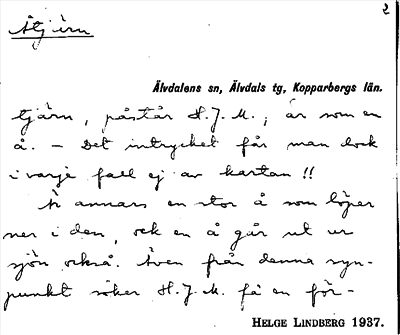 2
Åtjärn
Älvdalens sn, Älvdals tg, Kopparbergs län.
tjärn, påstår H.J.M., är som en
å. – Det intrycket får man dock
i varje fall ej av kartan!!
Är annars en stor å som löper
ner i den, och en å går ut ur
sjön också. Även från denna syn-
punkt söker H.J.M. få en för-
HELGE LINDBERG 1937.